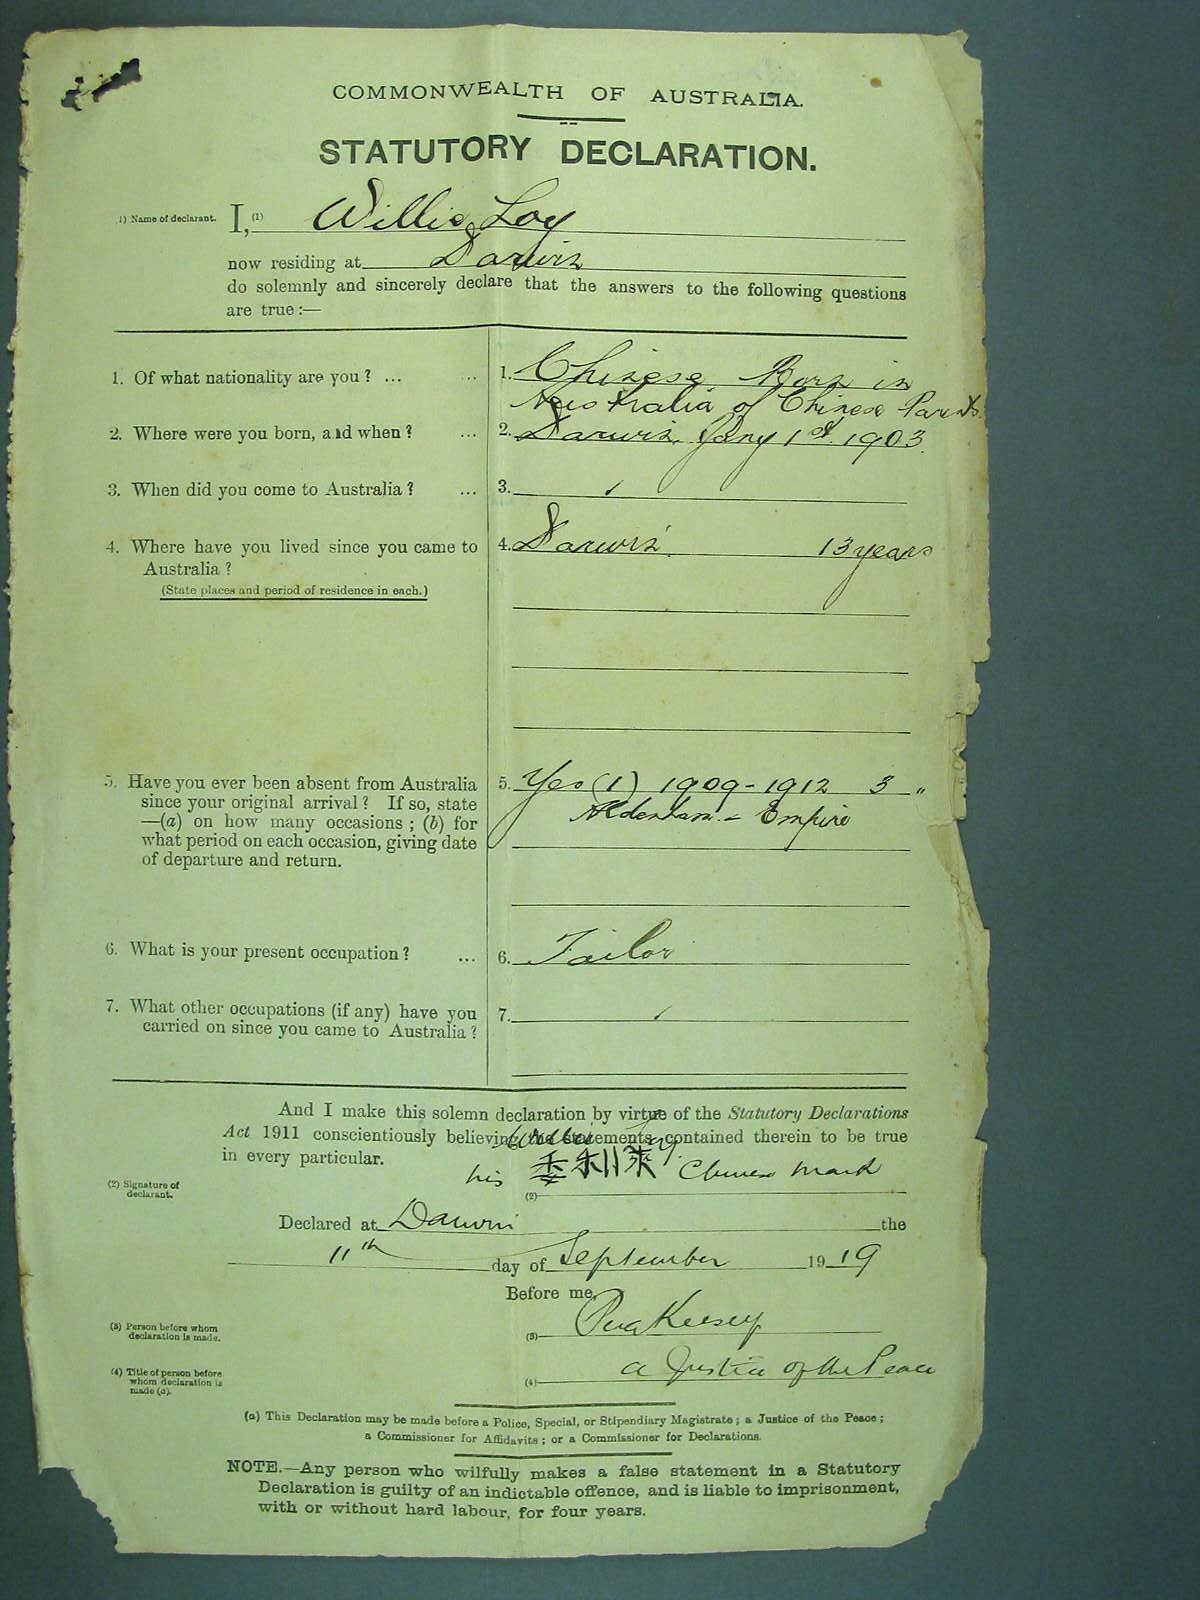 COMMONWEALTH OF AUSTRALIA.
STATUTORY DECLARATION.
1) Name of declarant. I, (1) Willie Loy
now residing at Darwin
do solemnly and sincerely declare that the answers to the following questions
are true:—
1. Of what nationality are you? ... ... 1. Chinese Born in
Australia of Chinese Parents.
2. Where were you born, and when? ... 2. Darwin, Jany 1st. 1903.
3. When did you come to Australia? ... 3.
4. Where have you lived since you came to 4. Darwin. 13 years
Australia?
(State places and period of residence in each.)
5. Have you ever been absent from Australia 5. Yes (1) 1909-1912 3 "
since your original arrival? If so, state Aldenham - Empire
—(a) on how many occasions; (b) for
what period on each occasion, giving date
of departure and return.
6. What is your present occupation? ... 6. Tailor
7. What other occupations (if any) have you 7.
carried on since you came to Australia?
And I make this solemn declaration by virtue of the Statutory Declarations
Act 1911 conscientiously believing the statements contained therein to be true
Willie Loy.
in every particular.
his Chinese mark
(2) Signature of
declarant. (2)
Declared at Darwin the
11th day of September 1919
Before me,
(3) Person before whom
declaration is made. (3) Keesey
(4) Title of person before
whom declaration is
made (a). (4) a Justice of the Peace
(a) This Declaration may be made before a Police, Special, or Stipendiary Magistrate; a Justice of the Peace;
a Commissioner for Affidavits; or a Commissioner for Declarations.
NOTE.—Any person who wilfully makes a false statement in a Statutory
Declaration is guilty of an indictable offence, and is liable to imprisonment,
with or without hard labour, for four years.